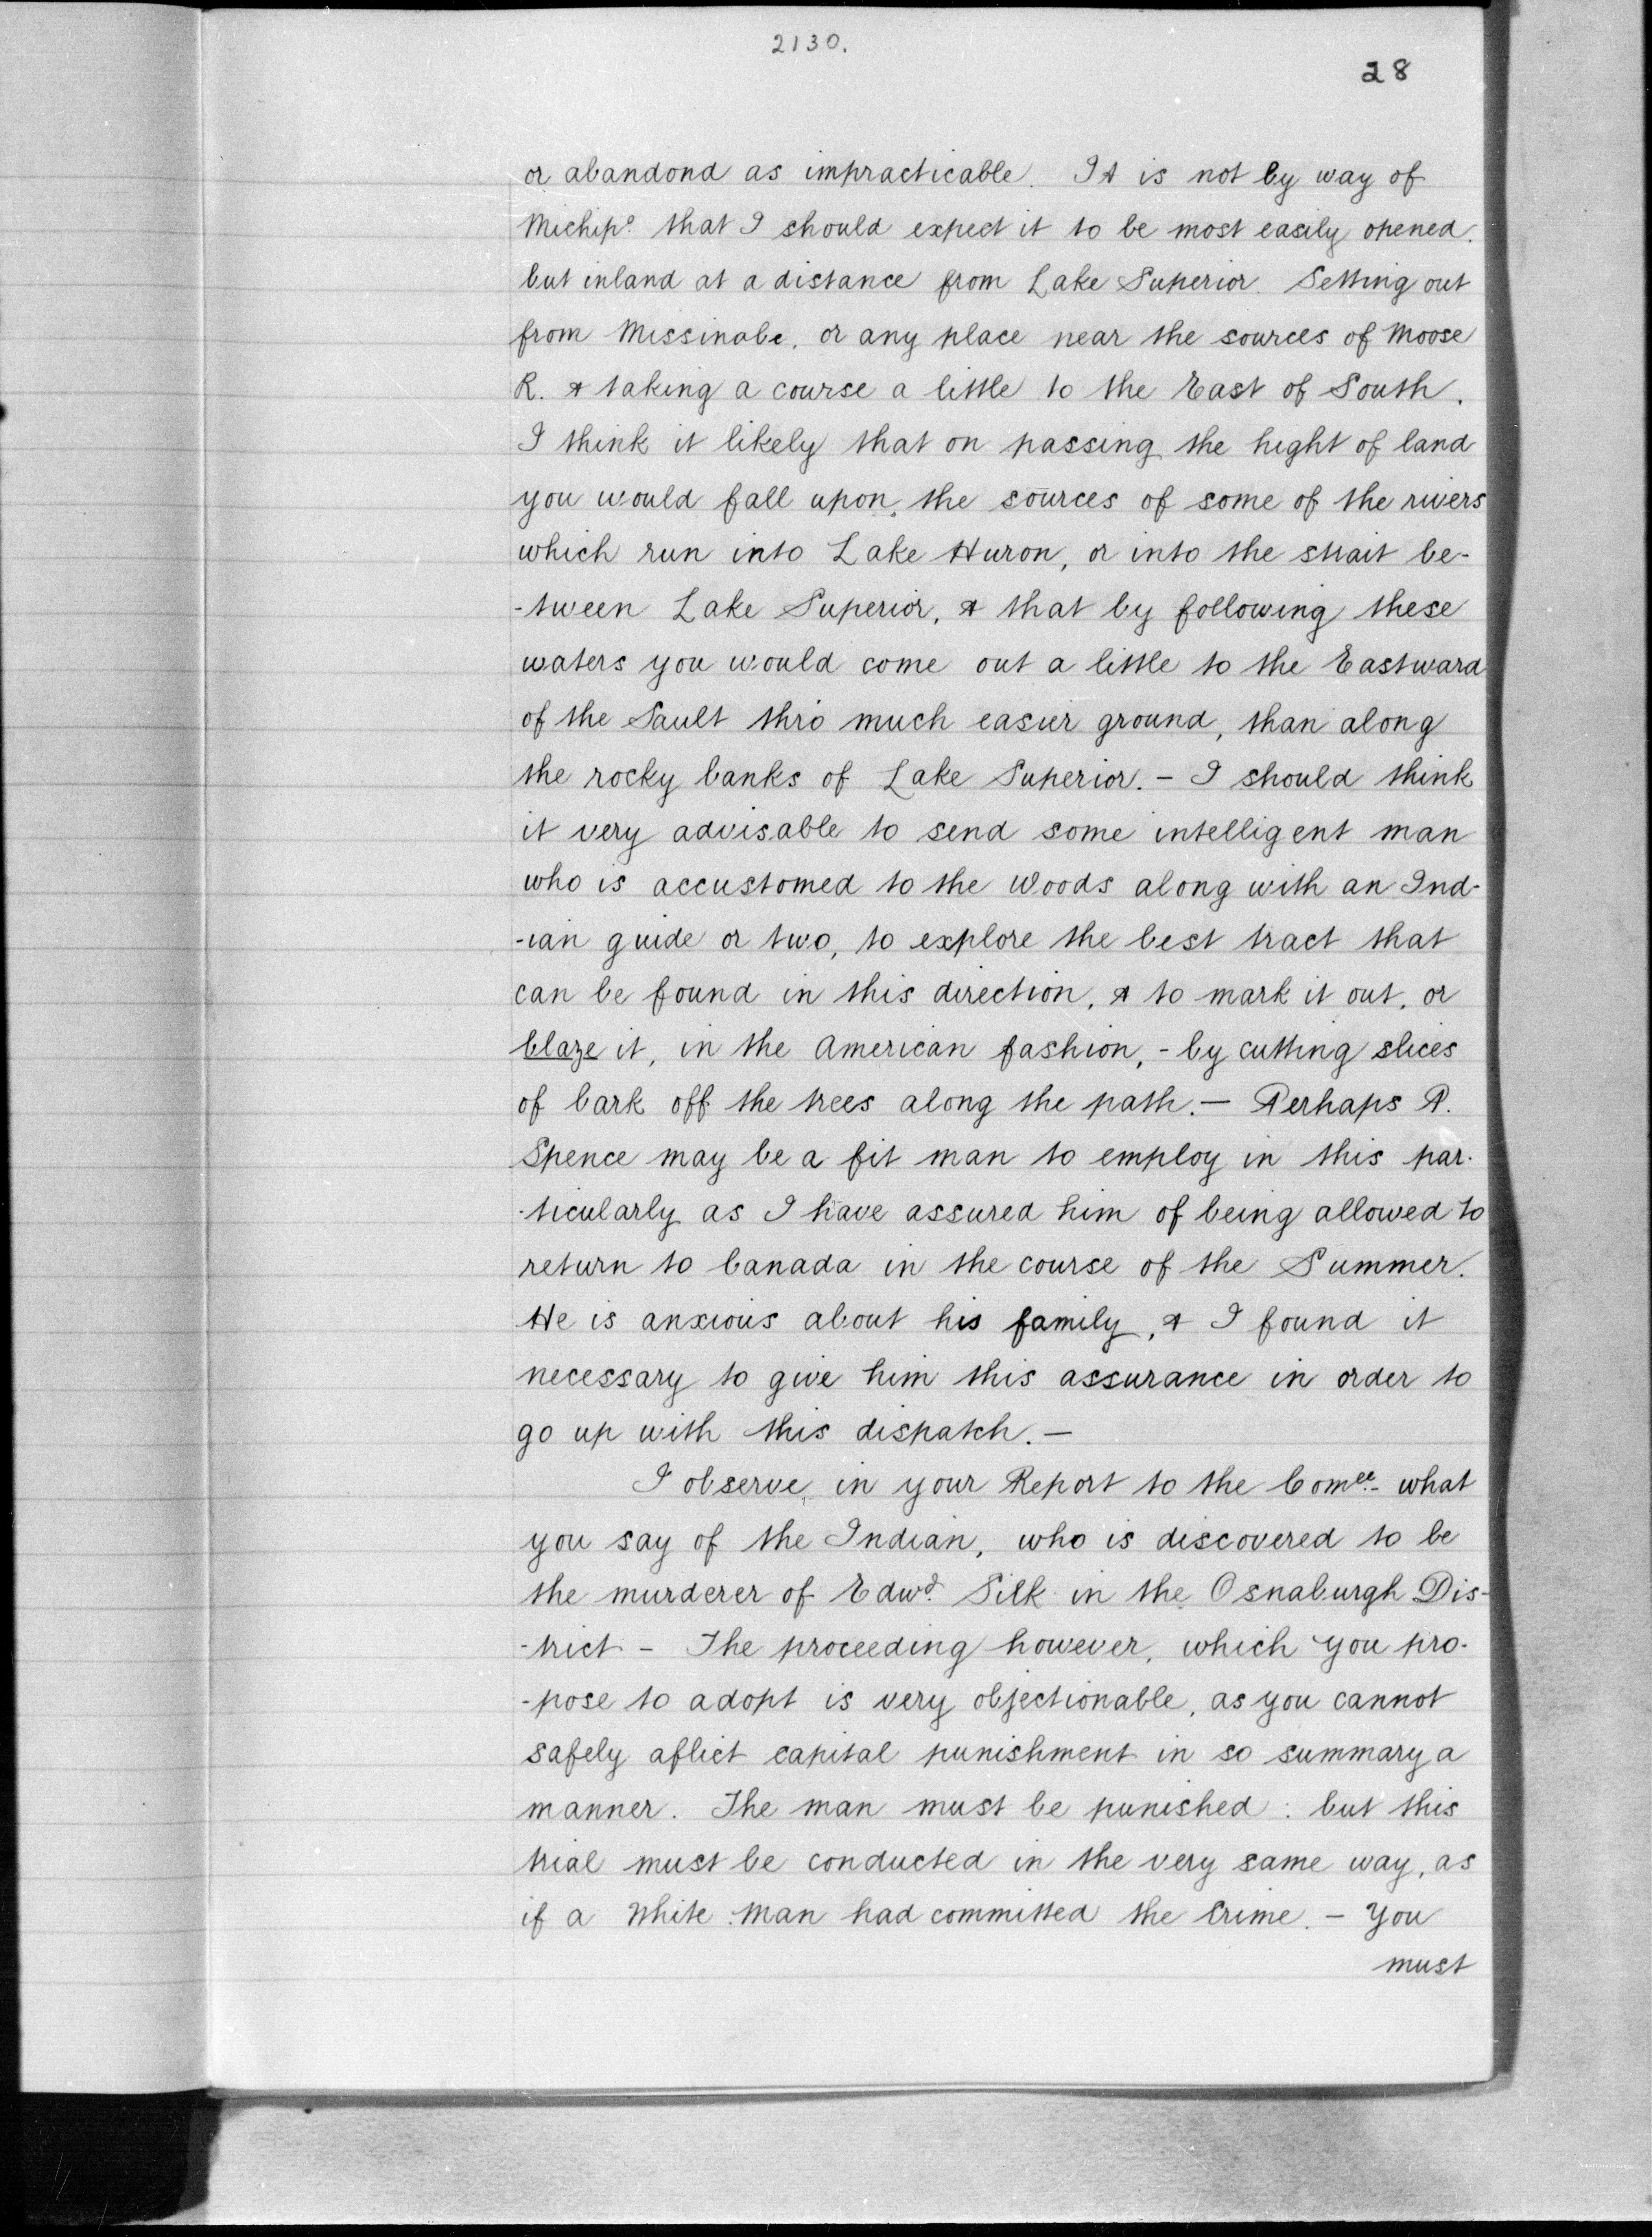 2130.
28
or abandond as impracticable. It is not by way of
Michipo. that I should expect it to be most easily opened.
but inland at a distance from Lake Superior. Setting out
from Missinabe, or any place near the sources of Moose
R. & taking a course a little to the East of South.
I think it likely that on passing the hight of land
you would fall upon, the sources of some of the rivers
which run into Lake Huron, or into the strait be-
-tween Lake Superior, & that by following these
waters you would come out a little to the Eastward
of the Sault thro much easier ground, than along
the rocky banks of Lake Superior. - I should think
it very advisable to send some intelligent man
who is accustomed to the Woods along with an Ind-
-ian guide or two, to explore the best tract that
can be found in this direction, & to mark it out, or
blaze it, in the American fashion, - by cutting slices
of bark off the trees along the path. — Perhaps P.
Spence may be a fit man to employ in this par-
-ticularly as I have assured him of being allowed to
return to Canada in the course of the Summer.
He is anxious about his family, & I found it
necessary to give him this assurance in order to
go up with this dispatch. —
I observe in your Report to the Comee. - what
you say of the Indian, who is discovered to be
the murderer of Edwd. Silk in the Osnaburgh Dis-
-trict - The proceeding however, which you pro-
-pose to adopt is very objectionable, as you cannot
safely aflict capital punishment in so summary a
manner. The man must be punished: but this
trial must be conducted in the very same way, as
if a White Man had committed the Crime. - You
must